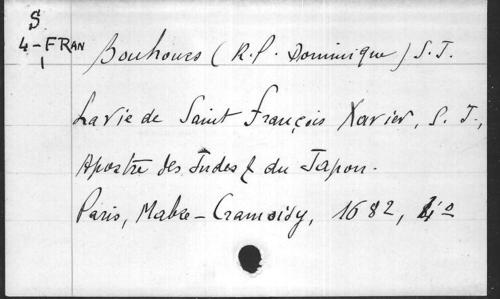 S.
4-FRAN
1
Bouhours (R.P. Dominique) S.J.
La vie de Saint François Xavier, S.J.,
Apostre des Indes & du Japon.
Paris, Mabre-Cramoisy, 1682, 4º